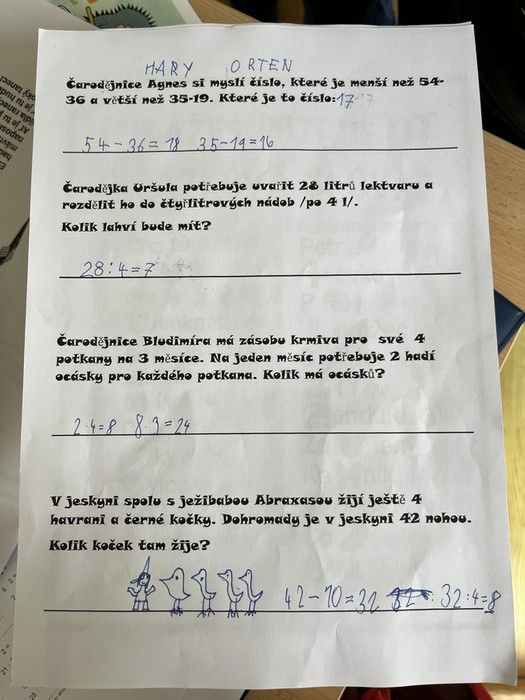 HARY ORTEN
Čarodějnice Agnes si myslí číslo, které je menší než 54-
36 a větší než 35-19. Které je to číslo:17
54-36=18 35-19=16
Čarodějka Uršula potřebuje uvařit 28 litrů lektvaru a
rozdělit ho do čtyřlitrových nádob /po 4 l/.
Kolik lahví bude mít?
28:4=7
Čarodějnice Bludimíra má zásobu krmiva pro své 4
potkany na 3 měsíce. Na jeden měsíc potřebuje 2 hadí
ocásky pro každého potkana. Kolik má ocásků?
2·4=8 8·3=24
V jeskyni spolu s ježibabou Abraxasou žijí ještě 4
havrani a černé kočky. Dohromady je v jeskyni 42 nohou.
Kolik koček tam žije?
42-10=32 32:4=8